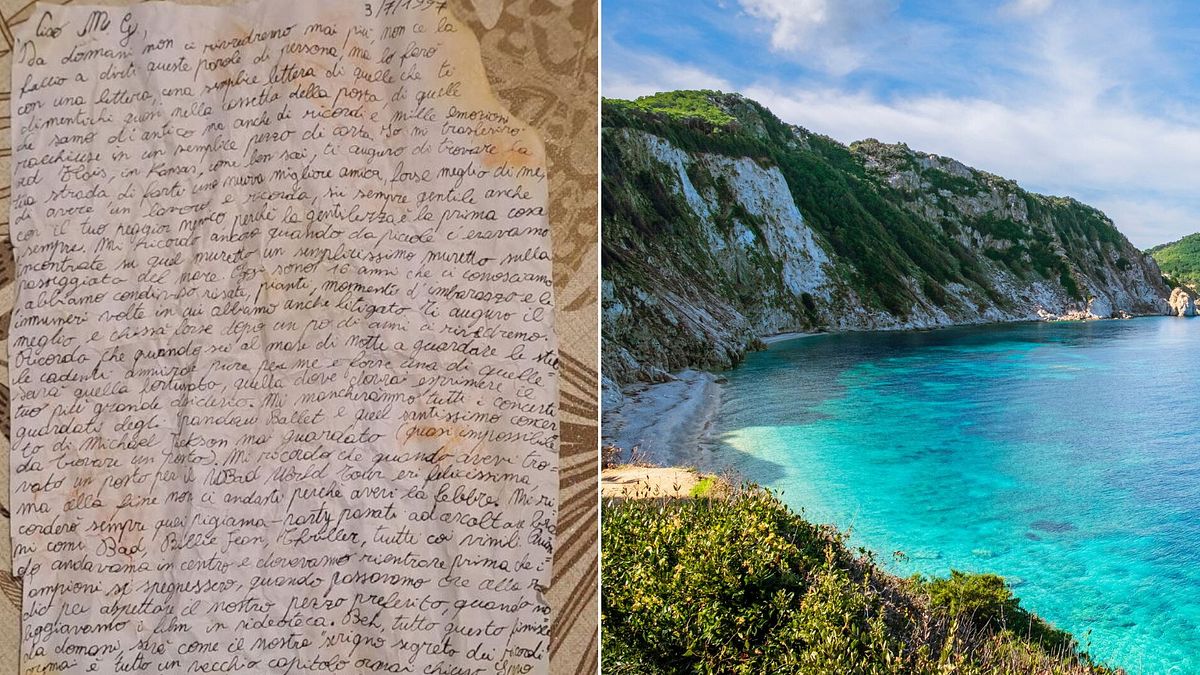 3/7/1997
Ciao M. G,
Da domani non ci rivedremo mai più non ce la
faccio a dirti queste parole di persona, ma lo farò
con una lettera, una semplice lettera di quelle che ti
dimentichi quasi nella cassetta della posta, di quelle
che sanno di antico ma anche di ricordi e mille emozioni
racchiuse in un semplice pezzo di carta. Io mi trasferirò
in Kansas, come ben sai, ti auguro di trovare la
tua strada di farti una nuova migliore amica, forse meglio di me,
di avere un lavoro e ricorda, sii sempre gentile anche
con il tuo peggior nemico perché la gentilezza è la prima cosa
sempre. Mi ricordo ancora quando da picole ci eravamo
incontrate su quel muretto un semplicissimo muretto sulla
passeggiata del mare. sono 16 anni che ci conosciamo
abbiamo condiviso risate, pianti, momenti d'imbarazzo e le
innumeri volte in cui abbiamo anche litigato ti auguro il
meglio, e chissà forse dopo un po di anni ci rivedremo.
Ricorda che quando sei al mare di notte a guardare le stel
le cadenti ammira pure per me e forse una di quelle
sarà quella fortunata, quella dove potrai esprimere il
tuo più grande desiderio. Mi mancheranno tutti i concerti
guardati degli Spandau Ballet e quel tantissimo concer
to di Michael Jekson mai guardato (quasi impossibile
da trovare un posto). Mi ricordo che quando avevi tro-
vato un posto per il Bad World Tour eri felicissima
ma alla fine non ci andasti perché avevi la febbre. Mi ri
corderò sempre quei pigiama-party passati ad ascoltare bra
ni come Bad, Billie Jean, Thriller, tutte cose simili. Quan
do andavamo in centro e dovevamo rientrare prima che i
lampioni si spegnessero, quando passavamo ore alla ra
dio per aspettare il nostro pezzo preferito, quando no
leggiavamo i film in videoteca. Beh, tutto questo finisce
da domani, sarà come il nostro "scrigno segreto dei ricordi"
ormai è tutto un vecchio capitolo ormai chiuso